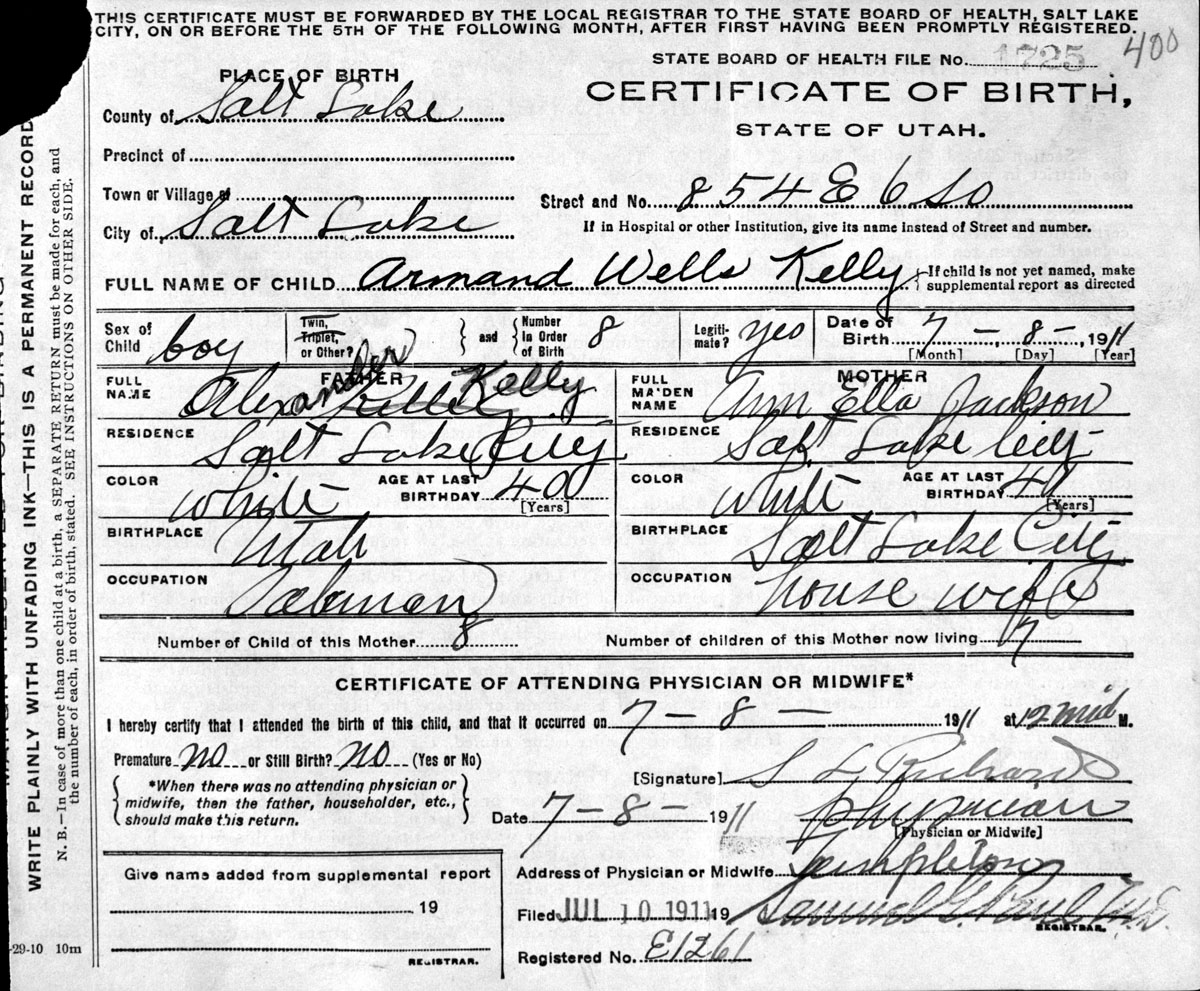 THIS CERTIFICATE MUST BE FORWARDED BY THE LOCAL REGISTRAR TO THE STATE BOARD OF HEALTH, SALT LAKE
CITY, ON OR BEFORE THE 5TH OF THE FOLLOWING MONTH, AFTER FIRST HAVING BEEN PROMPTLY REGISTERED.
400
STATE BOARD OF HEALTH FILE No. 1725
PLACE OF BIRTH
CERTIFICATE OF BIRTH,
STATE OF UTAH.
County of Salt Lake
Precinct of
Town or Village of
Street and No. 854 E 6 So
City of Salt Lake
If in Hospital or other Institution, give its name instead of Street and number.
FULL NAME OF CHILD Armand Wells Kelly
If child is not yet named, make
supplemental report as directed
Sex of Child boy
Twin, Triplet, or Other?
and
Number in Order of Birth 8
Legitimate? yes
Date of Birth 7 - 8 - 1911
[Month] [Day] [Year]
FATHER
FULL NAME Alexander Kelly
RESIDENCE Salt Lake City
COLOR White
AGE AT LAST BIRTHDAY 40
[Years]
BIRTHPLACE Utah
OCCUPATION
MOTHER
FULL MAIDEN NAME Ann Ella Jackson
RESIDENCE Salt Lake City
COLOR White
AGE AT LAST BIRTHDAY
[Years]
BIRTHPLACE Salt Lake City
OCCUPATION House wife
Number of Child of this Mother 8
Number of children of this Mother now living 7
CERTIFICATE OF ATTENDING PHYSICIAN OR MIDWIFE*
I hereby certify that I attended the birth of this child, and that it occurred on 7 - 8 - 1911 at 12 mid M.
Premature no or Still Birth? no (Yes or No)
*When there was no attending physician or
midwife, then the father, householder, etc.,
should make this return.
[Signature] S L Richards
Date 7 - 8 - 1911
physician
[Physician or Midwife]
Address of Physician or Midwife Templeton
Filed JUL 10 1911 19 Samuel G. Paul M.D.
REGISTRAR.
Registered No. E1261
Give name added from supplemental report
19
REGISTRAR.
-29-10 10m
WRITE PLAINLY WITH UNFADING INK—THIS IS A PERMANENT RECORD
N. B.—In case of more than one child at a birth, a SEPARATE RETURN must be made for each, and
the number of each, in order of birth, stated. SEE INSTRUCTIONS ON OTHER SIDE.